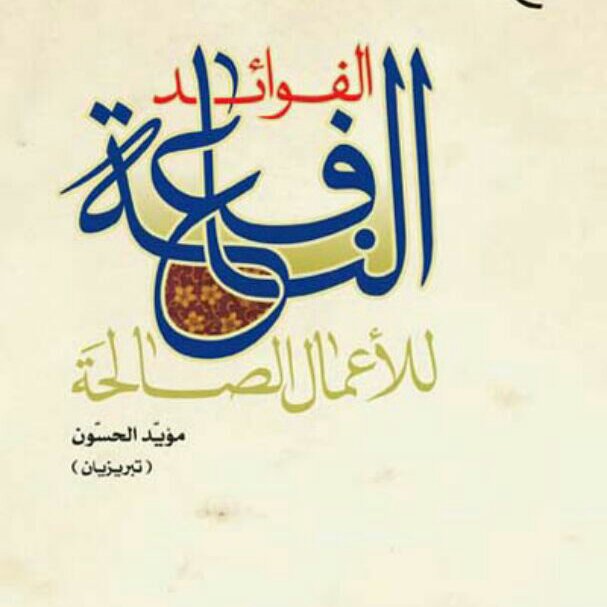 الفوائد
النافعة
للأعمال الصالحة
مؤيّد الحسّون
(تبريزيان)